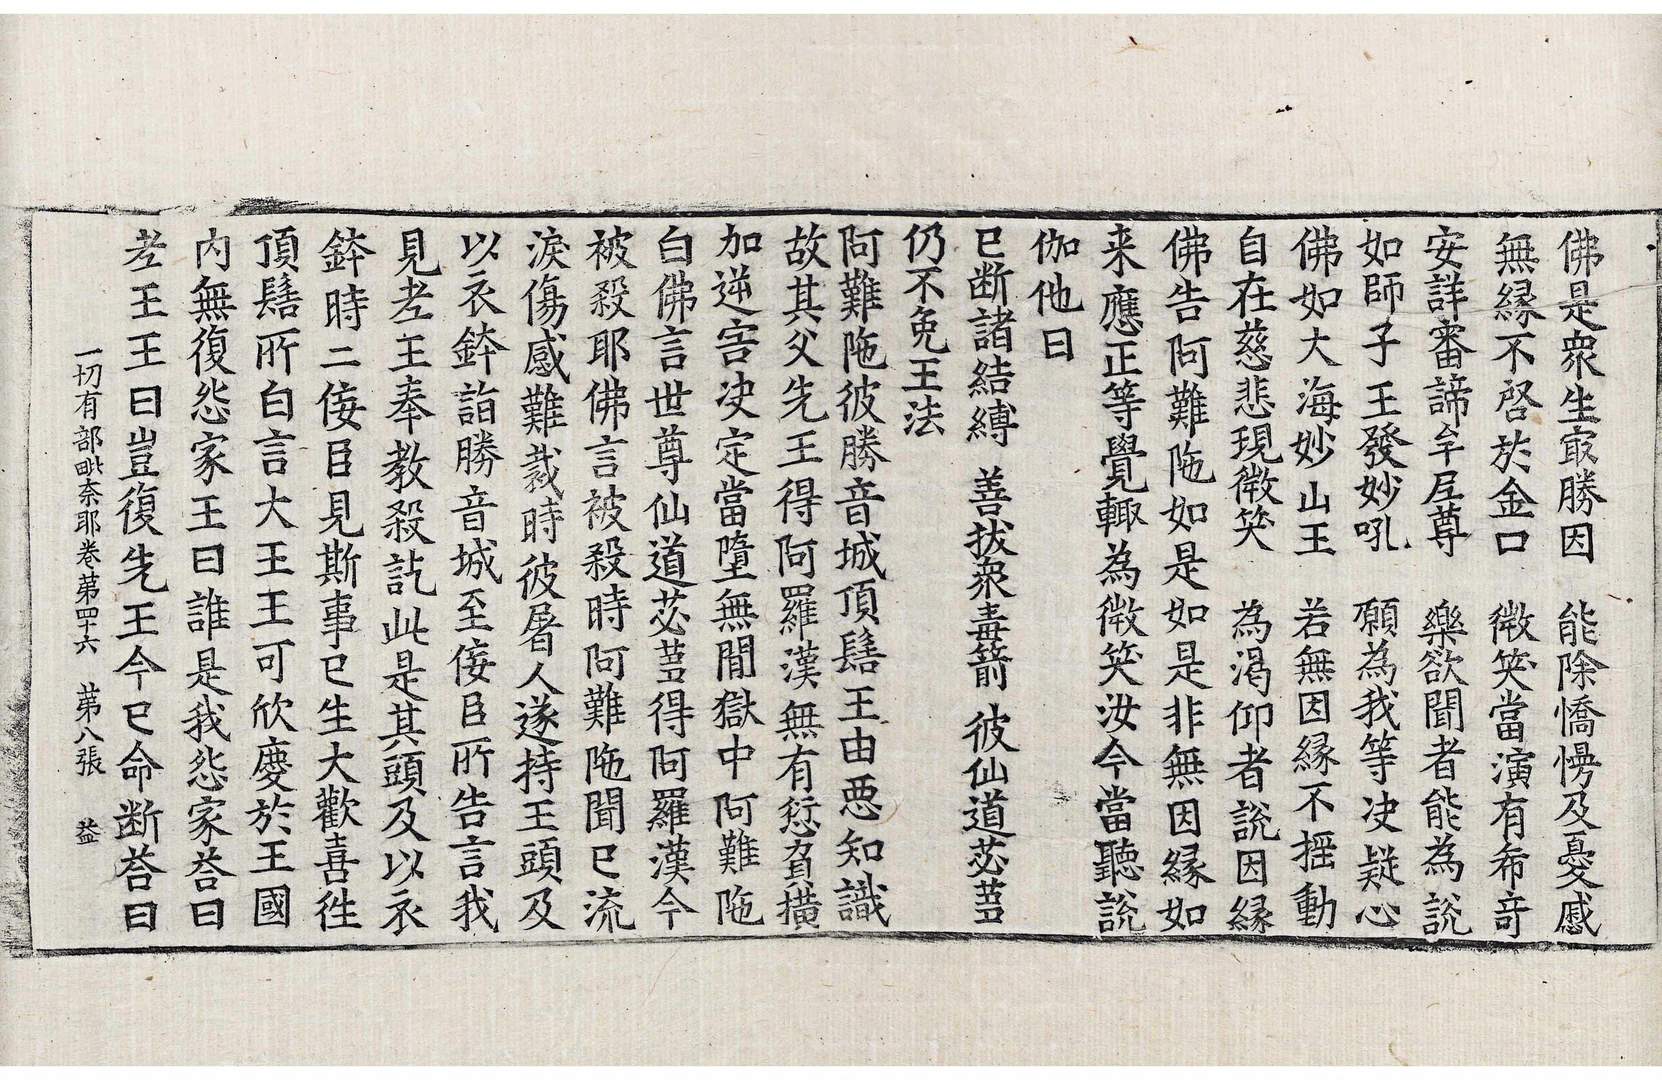 佛是衆生㝡勝因　能除憍慢及憂慼
無緣不啓於金口　微笑當演有希竒
安詳審諦牟尼尊　樂欲聞者能為說
如師子王發妙吼　願為我等決疑心
佛如大海妙山王　若無因緣不揺動
自在慈悲現微笑　為渴仰者說因緣
佛告阿難陁如是如是非無因緣如
来應正等覺輙為微笑汝今當聽說
伽他曰
已断諸結縛　善拔衆毒箭　彼仙道苾蒭
仍不免王法
阿難陁彼勝音城頂髻王由惡知識
故其父先王得阿羅漢無有愆負横
加逆害决定當墮無間獄中阿難陁
白佛言世尊仙道苾蒭得阿羅漢今
被殺耶佛言被殺時阿難陁聞已流
淚傷感難裁時彼屠人遂持王頭及
以衣鉢詣勝音城至侫臣所告言我
見老王奉教殺訖此是其頭及以衣
鉢時二侫臣見斯事已生大歡喜徃
頂髻所白言大王王可欣慶於王國
內無復怨家王曰誰是我怨家荅曰
老王王曰豈復先王今已命断荅曰
一切有部毗奈耶卷第四十六　第八張　益